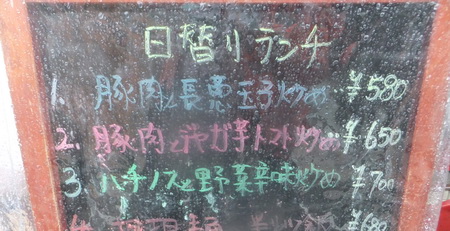 日替りランチ
1. 豚肉と長葱玉子炒め ¥580
2. 豚肉とじゃが芋トマト炒め ¥650
3. ハチノスと野菜辛味炒め ¥700
¥680